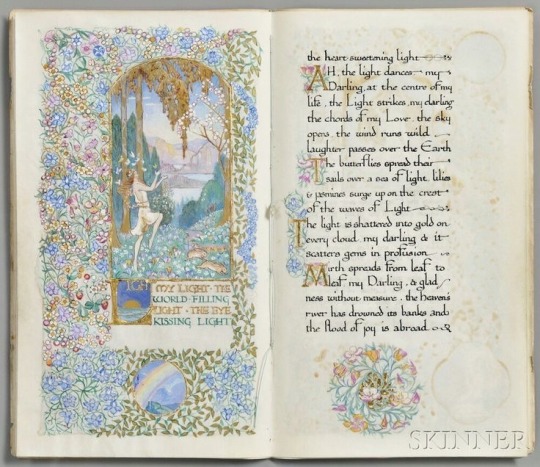 MY LIGHT · THE
WORLD · FILLING
LIGHT · THE EYE
KISSING LIGHT
the heart-sweetening light
AH, the light dances my
Darling, at the centre of my
life, the Light strikes, my darling
the chords of my Love. the sky
opens, the wind runs wild
laughter passes over the Earth
The butterflies spread their
sails over a sea of light. lilies
& jasmines surge up on the crest
of the waves of Light
The light is shattered into gold on
every cloud my darling & it
scatters gems in profusion
Mirth spreads from leaf to
leaf my Darling, & glad
ness without measure. the heaven's
river has drowned its banks and
the flood of joy is abroad.
SKINNER